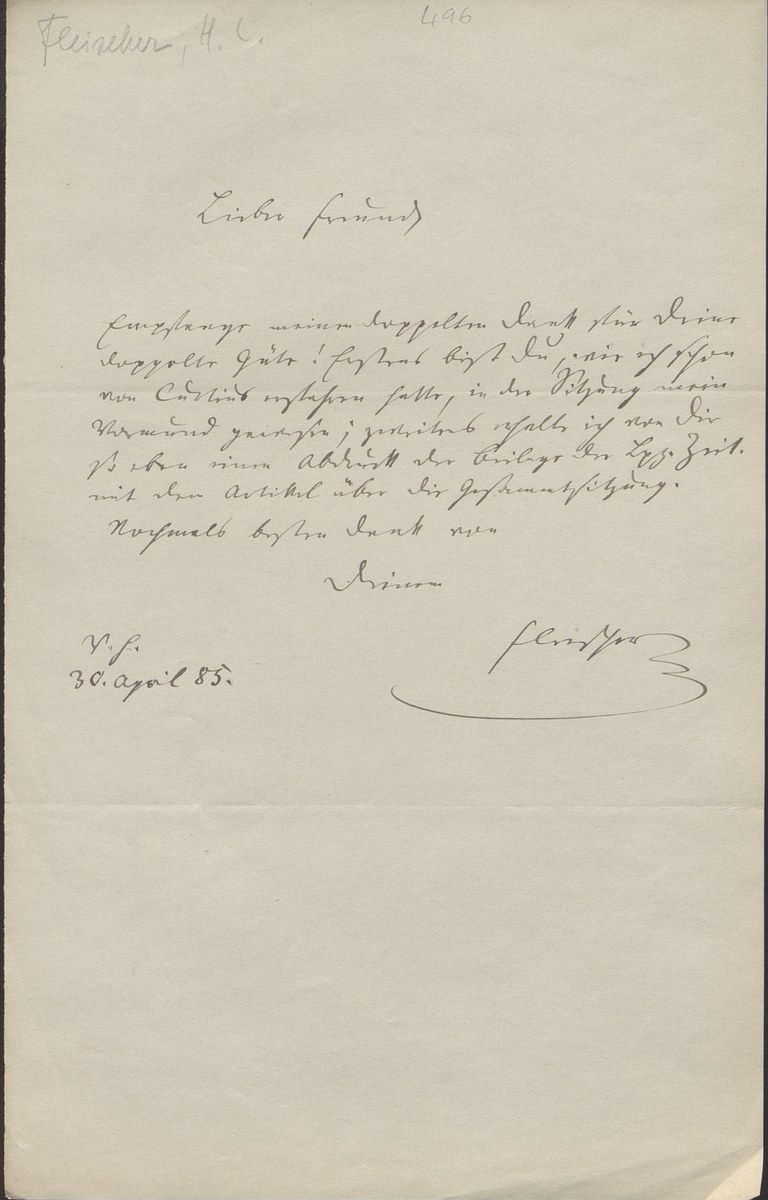 Fleischer, H. L.
496
Lieber Freund
Empfange meinen doppelten Dank für Deine
doppelte Güte! Erstens bist Du, wie ich schon
von Curtius erfahren hatte, in der Sitzung mein
Vormund gewesen; zweitens erhalte ich von Dir
so eben einen Abdruck der Beilage der Lpz. Zeit.
mit dem Artikel über die Gesammtsitzung.
Nochmals besten Dank von
Deinem
Fleischer
V. H.
30. April 85.